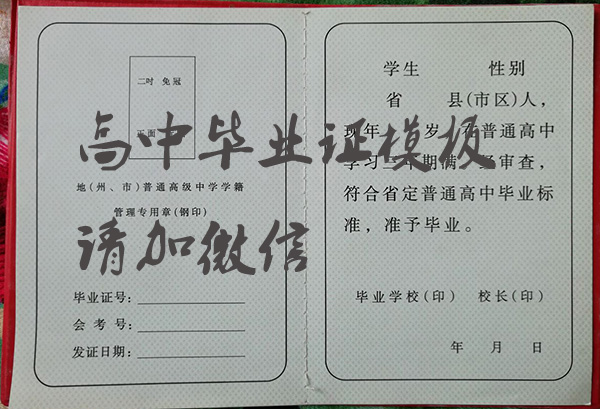 二吋 免冠
正面
地(州、市)普通高级中学学籍
管理专用章(钢印)
毕业证号:
会考号:
发证日期:
学生 性别
省 县(市区)人,
现年 岁,在普通高中
学习三年期满,经审查,
符合省定普通高中毕业标
准,准予毕业。
毕业学校(印) 校长(印)
年 月 日
高中毕业证模板
请加微信